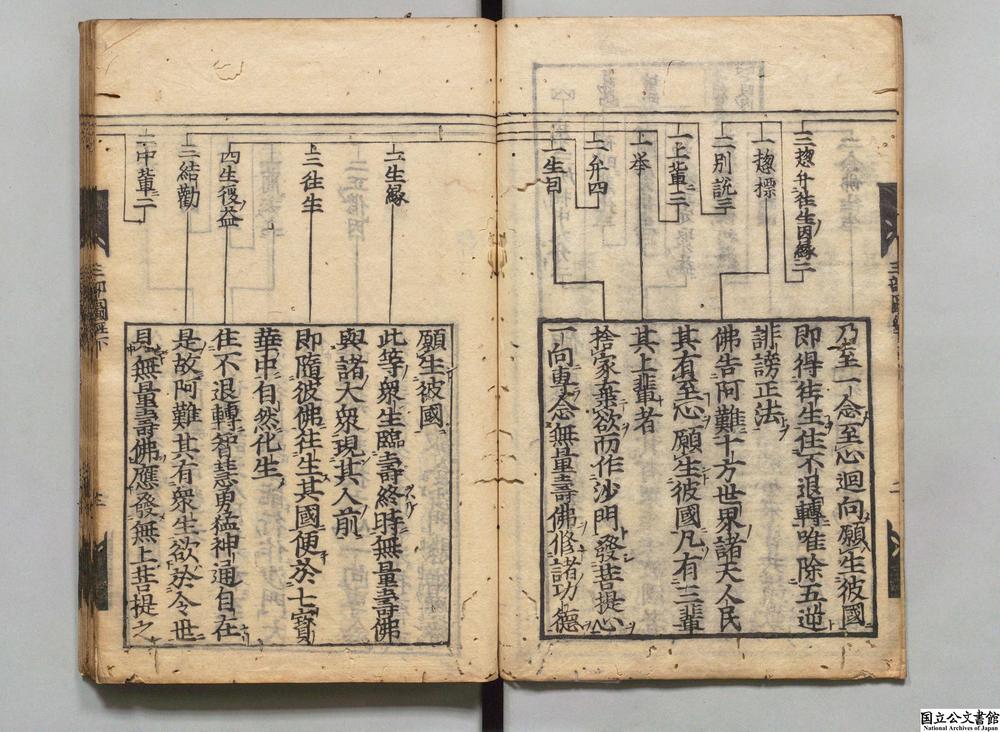 三惣弁往生因縁二
一惣標
二別説三
一上輩二
一挙
二弁四
一生因
乃至一念至心回向願生彼國
即得往生住不退轉唯除五逆
誹謗正法
佛告阿難十方世界諸天人民
其有至心願生彼國凡有三輩
其上輩者
捨家棄欲而作沙門發菩提心
一向專念無量壽佛修諸功德
二生縁
三往生
四生後益
三結勸
二中輩二
願生彼國
此等衆生臨壽終時無量壽佛
與諸大衆現其人前
即隨彼佛往生其國便於七寳
華中自然化生
住不退轉智慧勇猛神通自在
是故阿難其有衆生欲於今世
見無量壽佛應發無上菩提之
三部
下
国立公文書館
National Archives of Japan